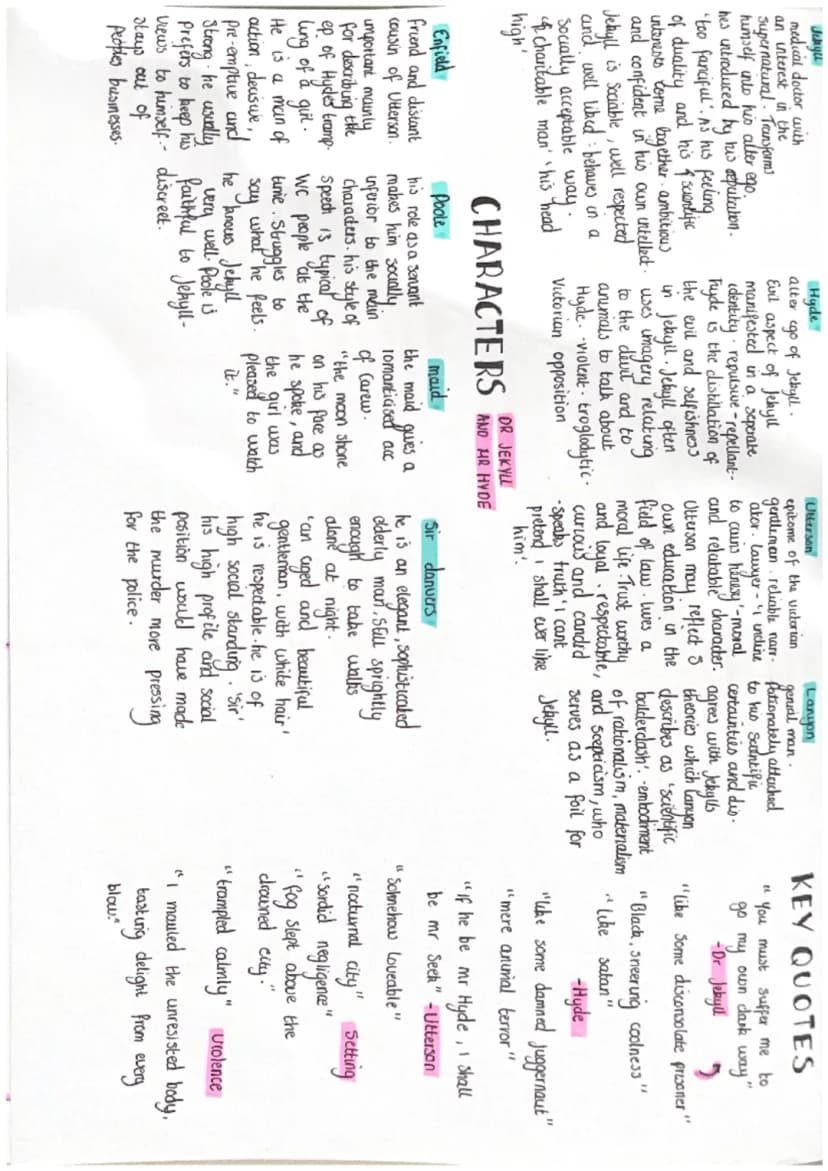 Jekyll
medical doctor with
an interest in the
supernatural. Transforms
himself into his alter ego.
hes introduced by his reputation.
'too fanciful'. As his feeling
of duality and his scientific
interests come together. ambitious
and confident in his own intellect.
Jekyll is sociable, well respected
and well liked: behaves in a
socially acceptable way.
'charitable man' 'his head
high'
Hyde
alter ego of Jekyll.
Evil aspect of Jekyll
manifested in a seperate
identity. repulsive-repellant-
Hyde is the distillation of
the evil and selfishness
in Jekyll. Jekyll often
uses imagery relating
to the devil and to
animals to talk about
Hyde. -violent. troglodytic-
Victorian opposition
Utterson
epitome of the victorian
gentleman. reliable narr-
ator. Lawyer-'I incline
to cains heresy'-moral
and relatable character.
Utterson may reflect S
own education in the
field of law. lives a
moral life. Trust worthy
and loyal. respectable,
curious and candid
-speaks truth 'I cant
pretend I shall ever like
him'.
Lanyon
genial man.
Pationately attached
to his scientific
certainties and dis-
agrees with Jekylls
theories which Lanyon
describes as 'scientific
balderdash'. -embodiment
of rationalism, materialism
and scepticism, who
serves as a foil for
Jekyll.
KEY QUOTES
"You must suffer me to
go my own dark way"
-Dr Jekyll
"Like some disconsolate prisoner"
"Black, sneering coolness"
"like satan"
-Hyde
"like some damned juggernaut"
"mere animal terror"
"If he be mr Hyde, I shall
be mr Seek" -Utterson
"somehow loveable"
"nocturnal city" Setting
"sordid negligence"
"fog slept above the
drowned city."
"trampled calmly" Violence
"I mauled the unresisted body,
tasting delight from every
blow."
CHARACTERS
DR JEKYLL
AND MR HYDE
Enfield
friend and distant
cousin of Utterson.
important mainly
for describing the
ep of Hydes tramp-
ling of a girl.
He is a man of
action, decisive,
pre-emptive and
strong. he usually
prefers to keep his
views to himself-
stays out of
peoples businesses.
Poole
his role as a servant
makes him socially
inferior to the main
characters. his style of
speech is typical of
WC people at the
time. Struggles to
say what he feels.
he knows Jekyll
very well. Poole is
faithful to Jekyll-
discreet.
maid
the maid gives a
romanticised acc
of Carew.
"the moon shone
on his face as
he spoke, and
the girl was
pleased to watch
it."
Sir danvers
he is an elegant, sophisticated
elderly man. Still sprightly
enough to take walks
alone at night.
'an aged and beautiful
gentleman, with white hair'
he is respectable. he is of
high social standing. 'Sir'
his high profile and social
position would have made
the murder more pressing
for the police.